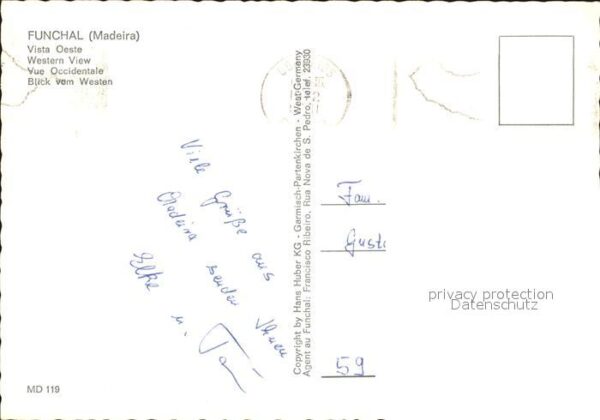 FUNCHAL (Madeira)
Vista Oeste
Western View
Vue Occidentale
Blick vom Westen
Viele Grüße aus
Madeira senden Ihnen
Elke u.
Copyright by Hans Huber KG - Garmisch-Partenkirchen - West-Germany
Agent au Funchal: Francisco Ribeiro, Rua Nova de S. Pedro, telef. 23930
Fam.
Gust
privacy protection
Datenschutz
59
MD 119